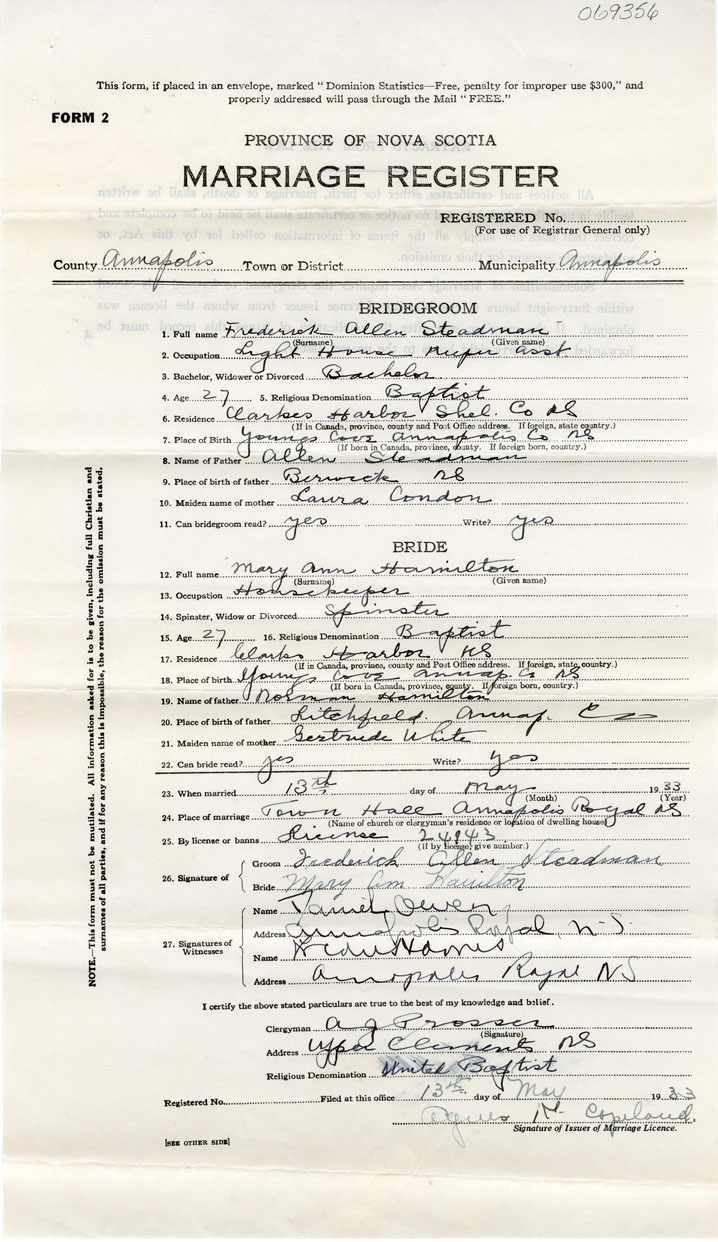 069356
This form, if placed in an envelope, marked "Dominion Statistics—Free, penalty for improper use $300," and
properly addressed will pass through the Mail "FREE."
FORM 2
PROVINCE OF NOVA SCOTIA
MARRIAGE REGISTER
REGISTERED No.
(For use of Registrar General only)
County Annapolis Town or District Municipality Annapolis
BRIDEGROOM
1. Full name Frederick Allen Steadman
(Surname) (Given name)
2. Occupation Light House Keeper asst
3. Bachelor, Widower or Divorced Bachelor
4. Age 27 5. Religious Denomination Baptist
6. Residence Clarkes Harbor Shel. Co NS
(If in Canada, province, county and Post Office address. If foreign, state country.)
7. Place of Birth Youngs Cove Annapolis Co NS
(If born in Canada, province, county. If foreign born, country.)
8. Name of Father Allen Steadman
9. Place of birth of father Berwick NS
10. Maiden name of mother Laura Condon
11. Can bridegroom read? yes Write? yes
BRIDE
12. Full name Mary Ann Hamilton
(Surname) (Given name)
13. Occupation Housekeeper
14. Spinster, Widow or Divorced Spinster
15. Age 27 16. Religious Denomination Baptist
17. Residence Clarks Harbor NS
(If in Canada, province, county and Post Office address. If foreign, state country.)
18. Place of birth Youngs Cove Annap. Co NS
(If born in Canada, province, county. If foreign born, country.)
19. Name of father Norman Hamilton
20. Place of birth of father Litchfield Annap. Co
21. Maiden name of mother Gertrude White
22. Can bride read? yes Write? yes
23. When married 13th day of May 1933
(Month) (Year)
24. Place of marriage Town Hall Annapolis Royal NS
(Name of church or clergyman's residence or location of dwelling house)
25. By license or banns License 24943
(If by license, give number.)
26. Signature of
Groom Frederick Allen Steadman
Bride Mary Ann Hamilton
27. Signatures of Witnesses
Name Daniel Owen
Address Annapolis Royal, N.S.
Name Harris
Address Annapolis Royal NS
I certify the above stated particulars are true to the best of my knowledge and belief.
Clergyman A J Prosser
(Signature)
Address Upper Clements NS
Religious Denomination United Baptist
Registered No. Filed at this office 13th day of May 1933
Agnes M. Copeland.
Signature of Issuer of Marriage Licence.
[SEE OTHER SIDE]
NOTE.—This form must not be mutilated. All information asked for is to be given, including full Christian and
surnames of all parties, and if for any reason this is impossible, the reason for the omission must be stated.